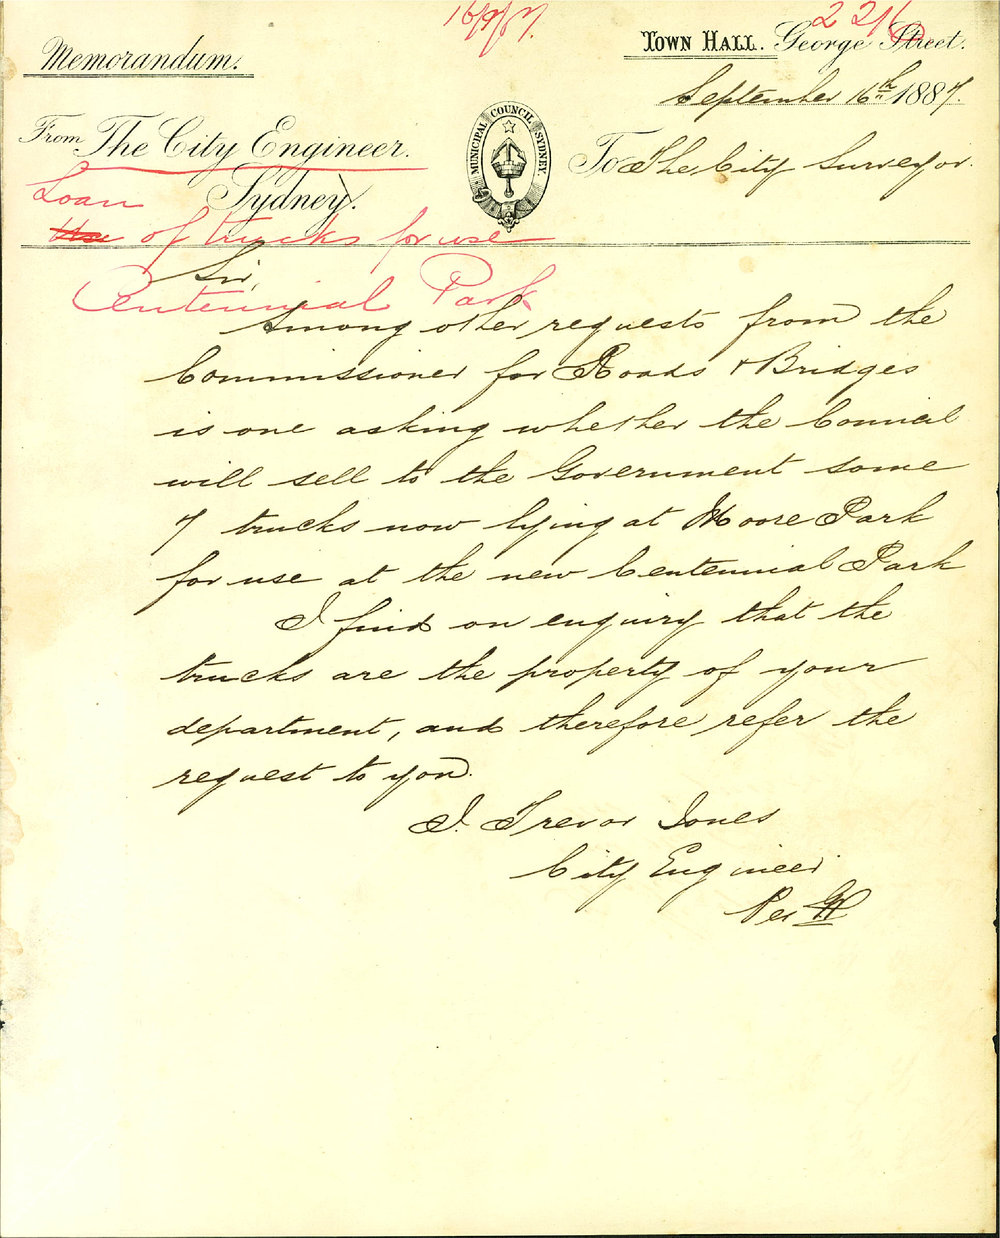 16/9/87.
2216
Memorandum.
TOWN HALL. George Street.
September 16th 1887.
From The City Engineer.
Sydney.
MUNICIPAL COUNCIL SYDNEY.
To The City Surveyor.
Loan
Use of trucks for use
Centennial Park
Sir,
Among other requests from the
Commissioner for Roads & Bridges
is one asking whether the Council
will sell to the Government some
7 trucks now lying at Moore Park
for use at the new Centennial Park
I find on enquiry that the
trucks are the property of your
department, and therefore refer the
request to you.
J. Trevor Jones
City Engineer
Per